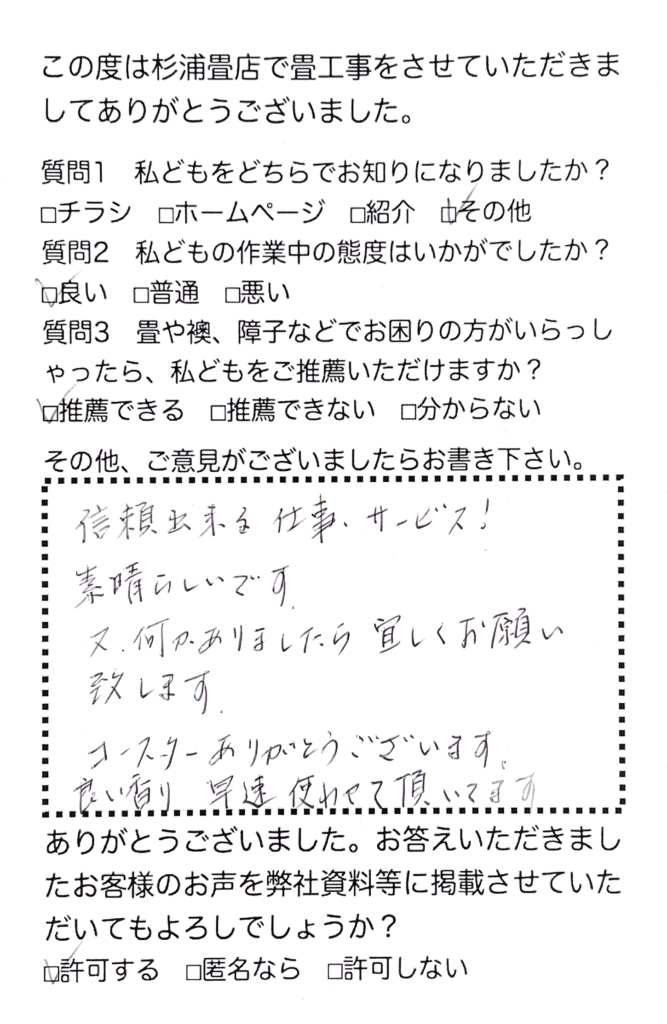 この度は杉浦畳店で畳工事をさせていただきま
してありがとうございました。
質問1　私どもをどちらでお知りになりましたか？
□チラシ　□ホームページ　□紹介　☑その他
質問2　私どもの作業中の態度はいかがでしたか？
☑良い　□普通　□悪い
質問3　畳や襖、障子などでお困りの方がいらっし
ゃったら、私どもをご推薦いただけますか？
☑推薦できる　□推薦できない　□分からない
その他、ご意見がございましたらお書き下さい。
信頼出来る仕事、サービス！
素晴らしいです。
又、何かありましたら宜しくお願い
致します。
コースターありがとうございます。
良い香り　早速使わせて頂いてます
ありがとうございました。お答えいただきまし
たお客様のお声を弊社資料等に掲載させていた
だいてもよろしでしょうか？
☑許可する　□匿名なら　□許可しない